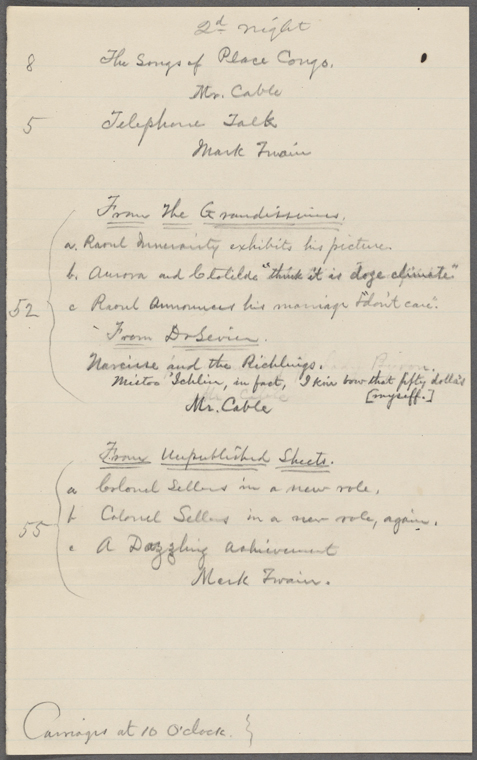 2d night
8 The Songs of Place Congo.
Mr. Cable
5 Telephone Talk
Mark Twain
From The Grandissimes.
a. Raoul Innerarity exhibits his picture.
b. Aurora and Clotilde "think it is doze climate"
c Raoul Announces his marriage "don't care".
52
From Dr Sevier.
Narcisse and the Richlings.
Mistoo 'Itchlin, in fact, I kin bow that fifty dollas
[myseff.]
Mr. Cable
From Unpublished Sheets.
a Colonel Sellers in a new role.
b Colonel Sellers in a new role, again.
55
c A Dazzling achievement
Mark Twain.
Carriages at 10 O'clock.